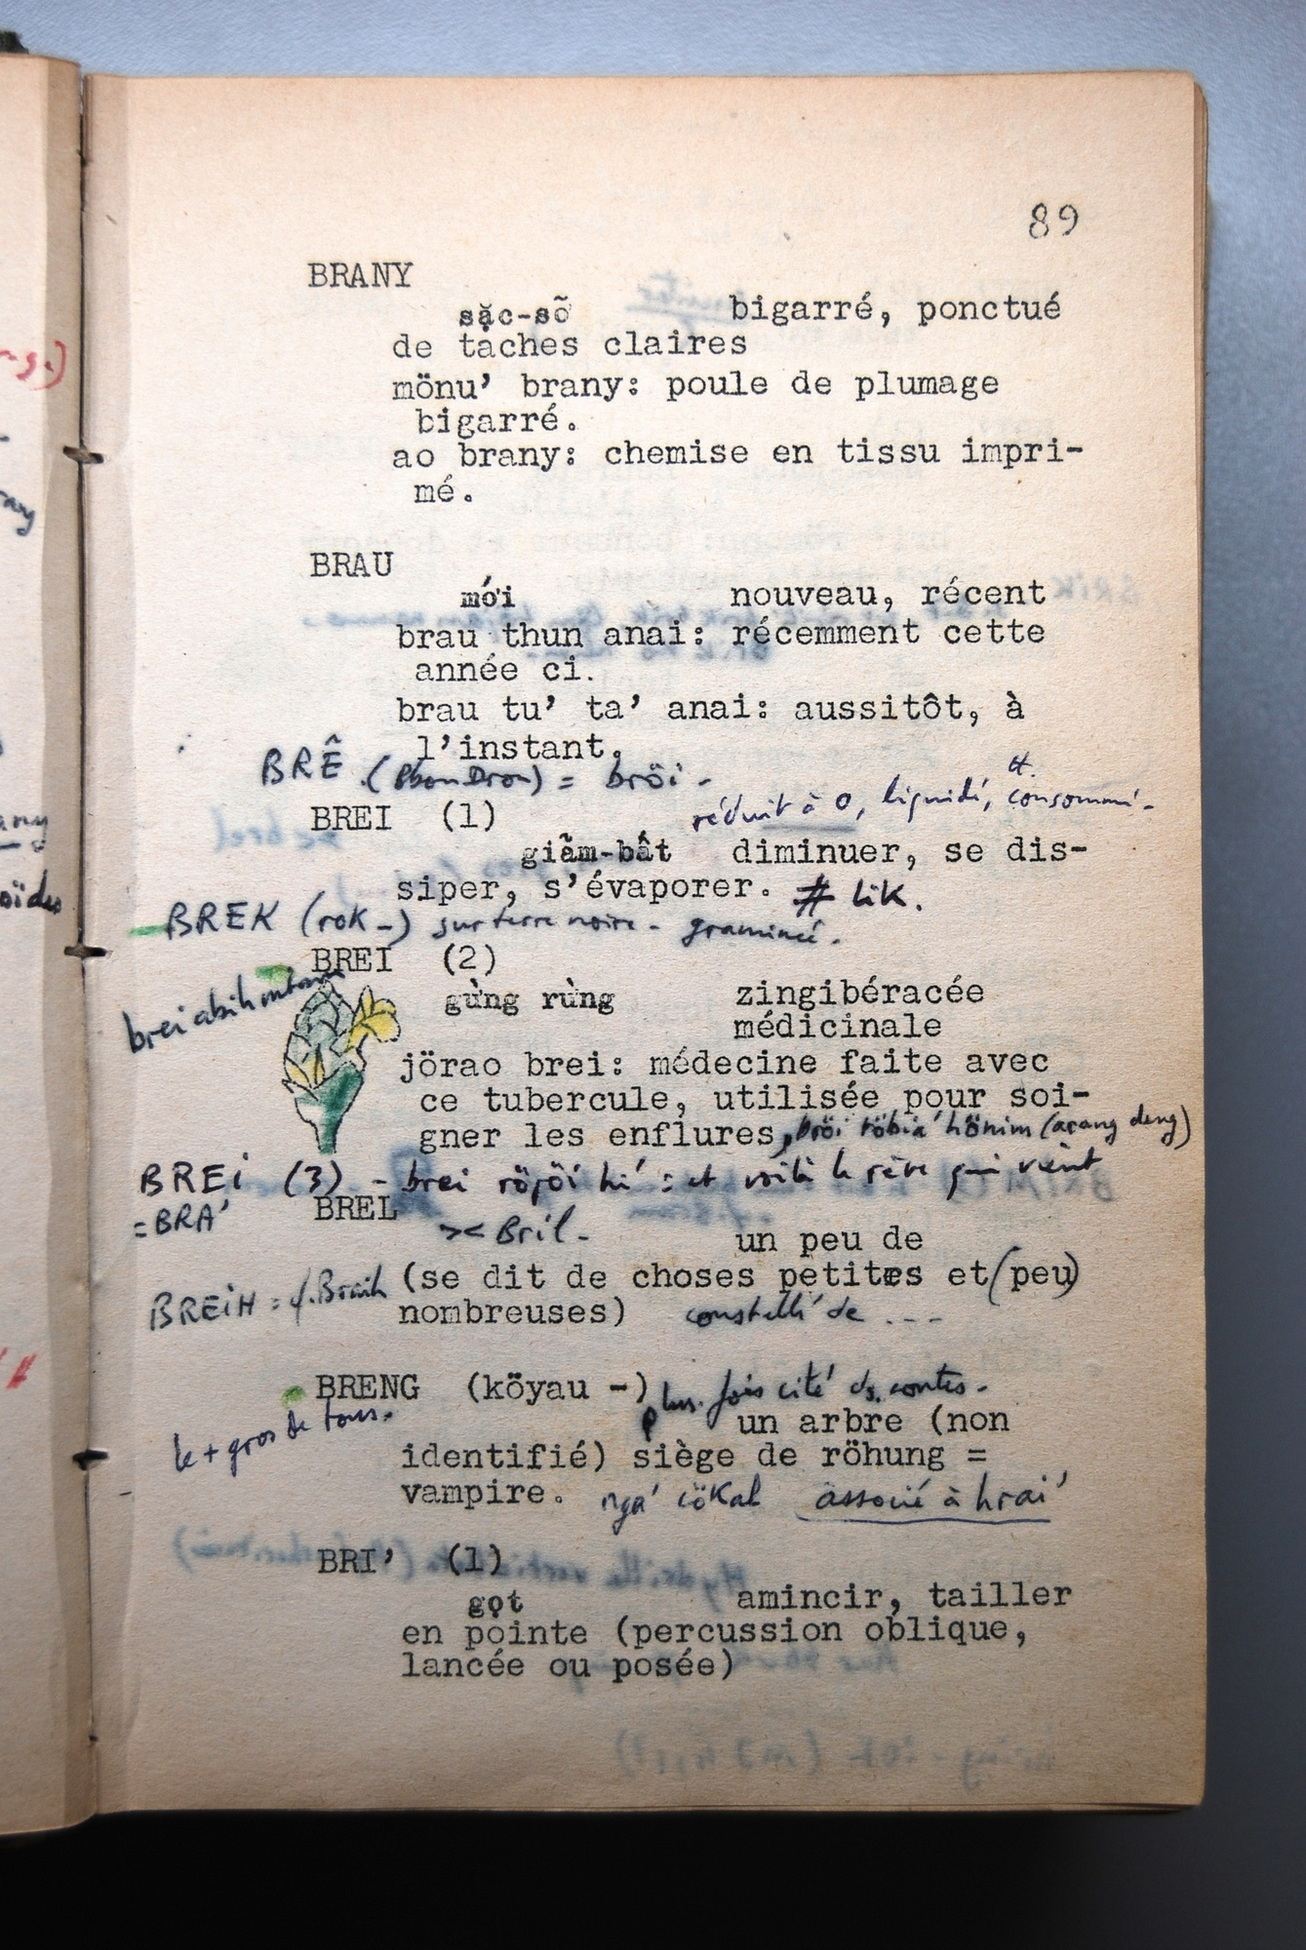 89
BRANY
sặc-sỡ bigarré, ponctué
de taches claires
mönu' brany: poule de plumage
bigarré.
ao brany: chemise en tissu impri-
mé.
BRAU
mới nouveau, récent
brau thun anai: récemment cette
année ci.
brau tu' ta' anai: aussitôt, à
l'instant.
BRÊ (Bbon Dron) = bröi -
BREI (1) réduit à 0, liquidé, consommé -
giảm-bớt diminuer, se dis-
siper, s'évaporer. # lik.
BREK (rok -) sur terre noire - graminée.
BREI (2)
brei abih
gừng rừng zingibéracée
médicinale
jörao brei: médecine faite avec
ce tubercule, utilisée pour soi-
gner les enflures, bröi röbia' hönim (acang deng)
BREI (3) - brei röpöi hi' : et voilà le rêve qui vient
=BRA'
BREL >< Bril -
un peu de
(se dit de choses petites et (peu)
nombreuses) constellé de ...
BREIH = cf. Braih
BRENG (köyau -) plus. fois cité ds. contes -
le + gros de tous.
un arbre (non
identifié) siège de röhung =
vampire. nga' cökal associé à hrai'
BRI' (1)
gọt amincir, tailler
en pointe (percussion oblique,
lancée ou posée)